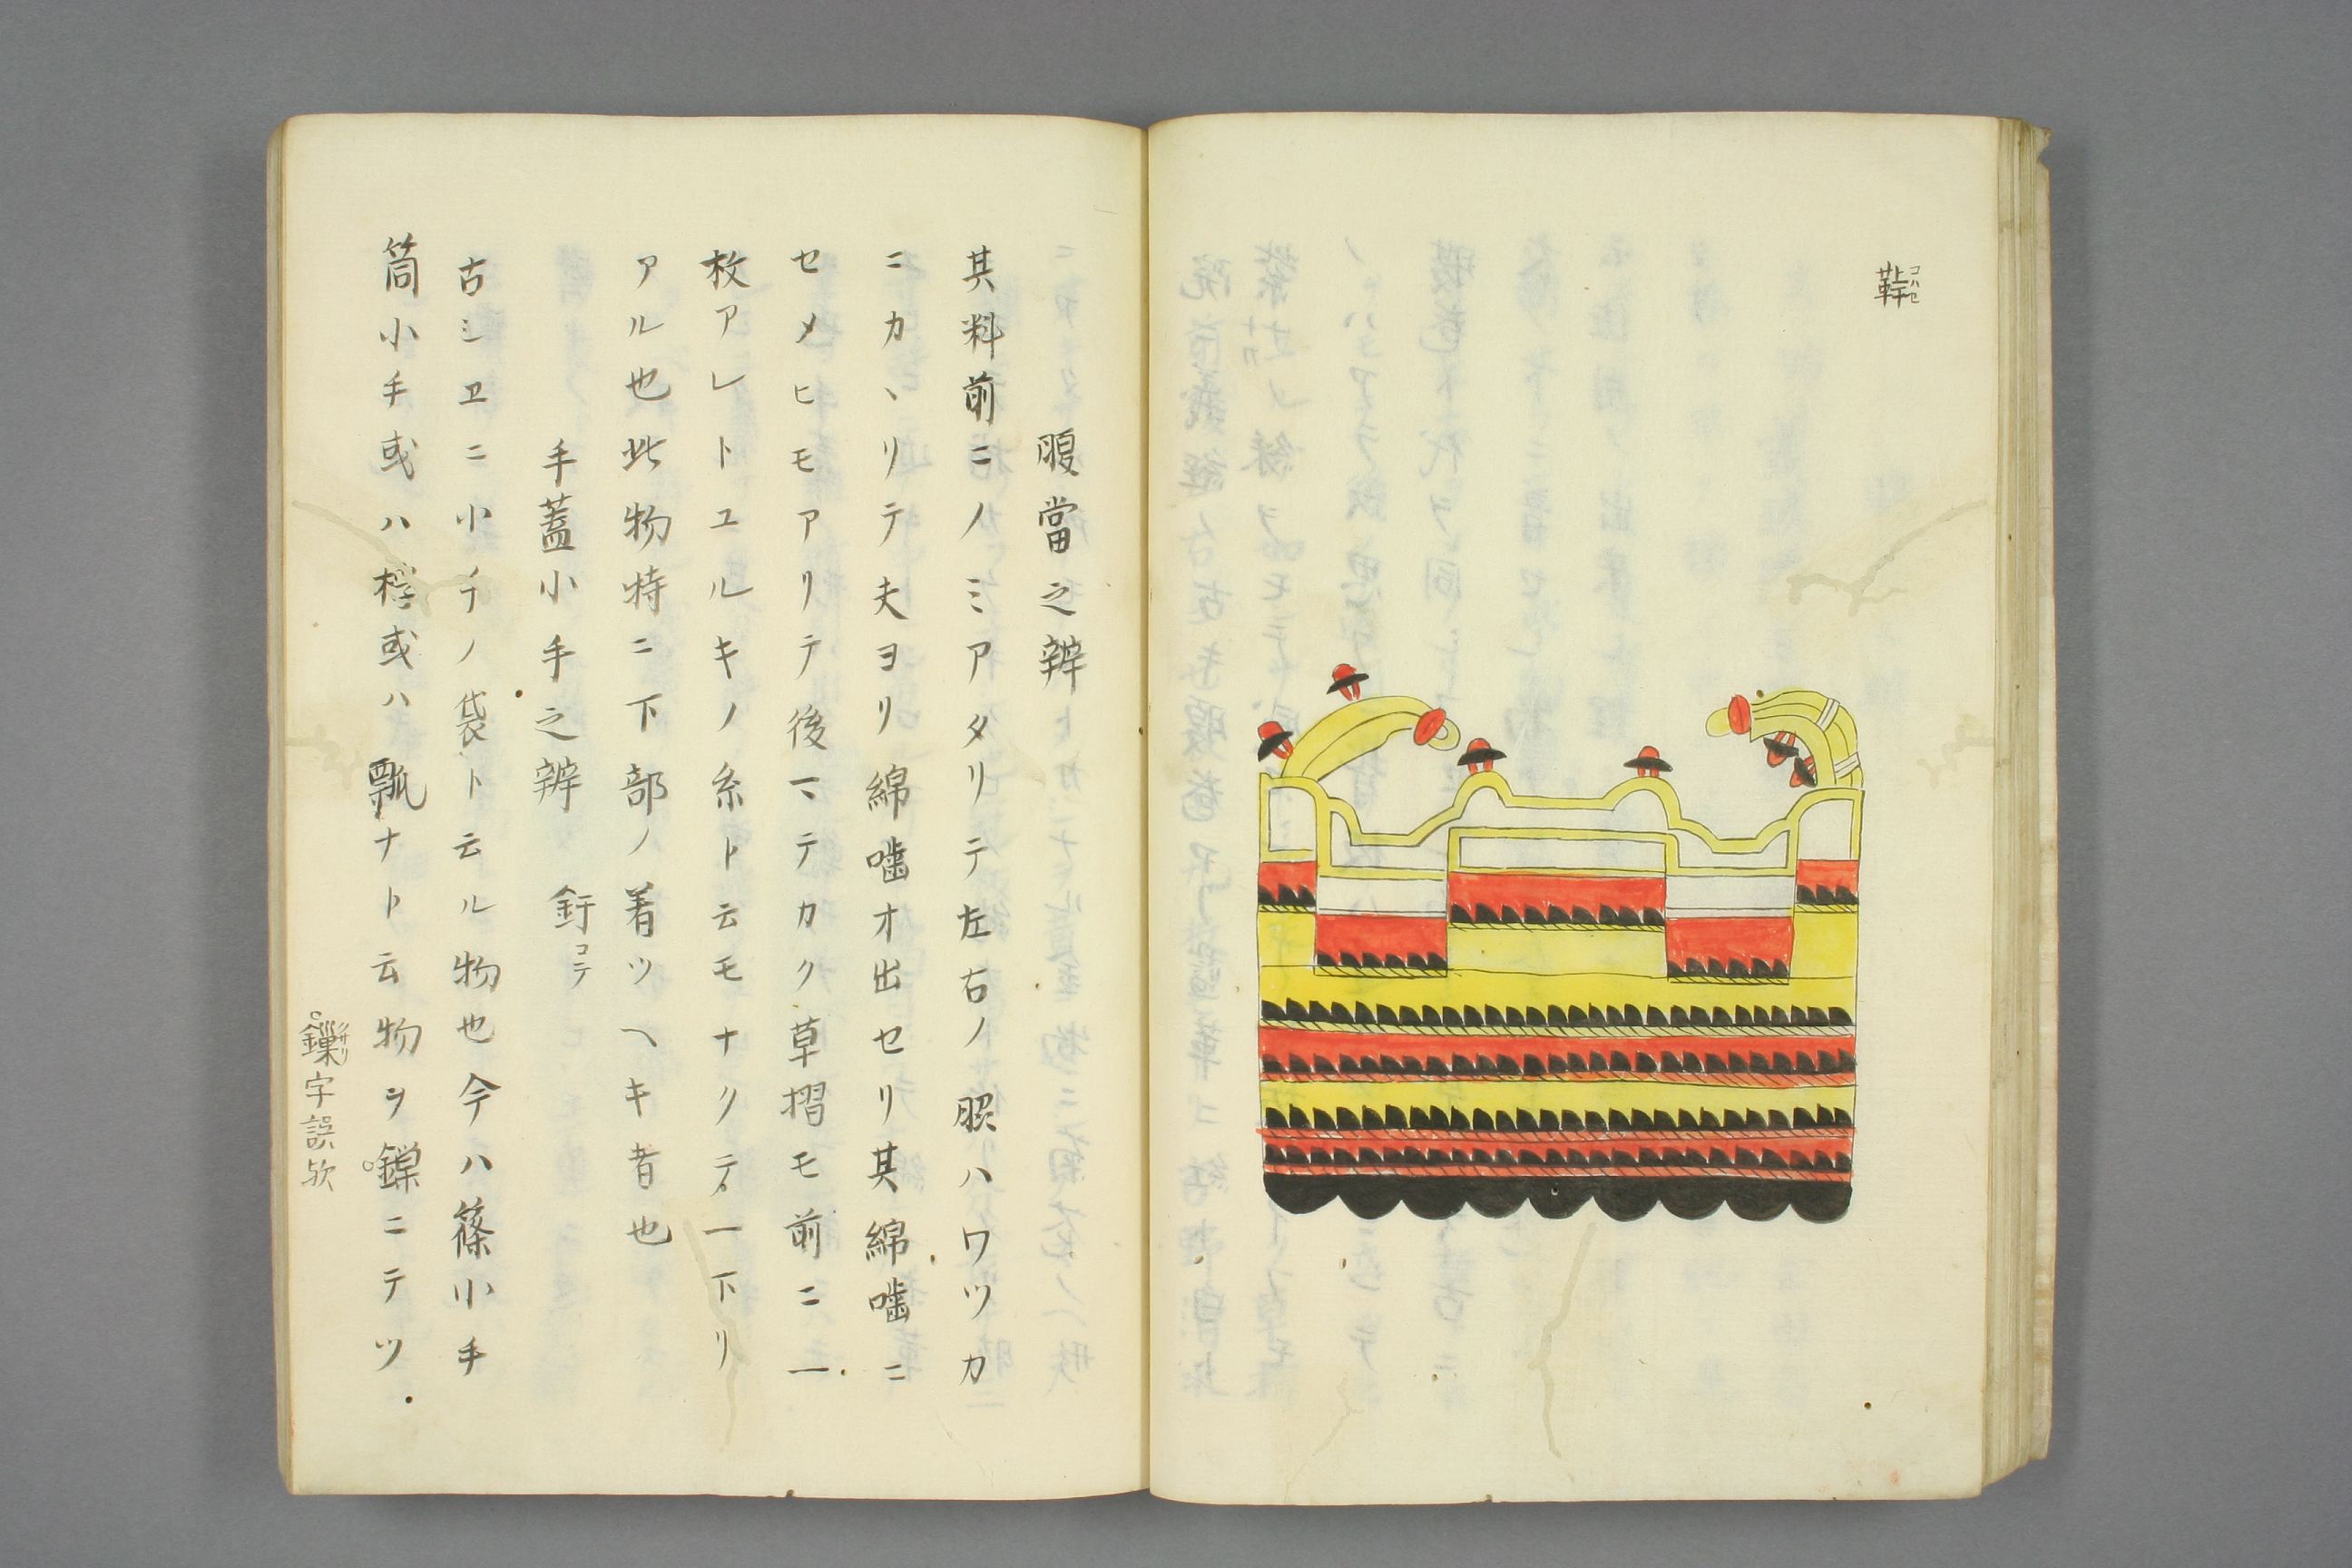 コハセ
腹當之辨
其料前ニノミアタリテ左右ノ脇ハワツカ
ニカヽリテ夫ヨリ綿噛オ出セリ其綿噛ニ
セメヒモアリテ後ニテカク草摺モ前ニ一
枚アレトユルキノ糸ト云モナクテ一下リ
アル也此物特ニ下部ノ着ツヘキ者也
手蓋小手之辨 釪コテ
古シヱニ小手ノ袋ト云ル物也今ハ篠小手
筒小手或ハ 或ハ瓢ナト云物ヲ鏁ニテツ
鏁クサリ字誤欤